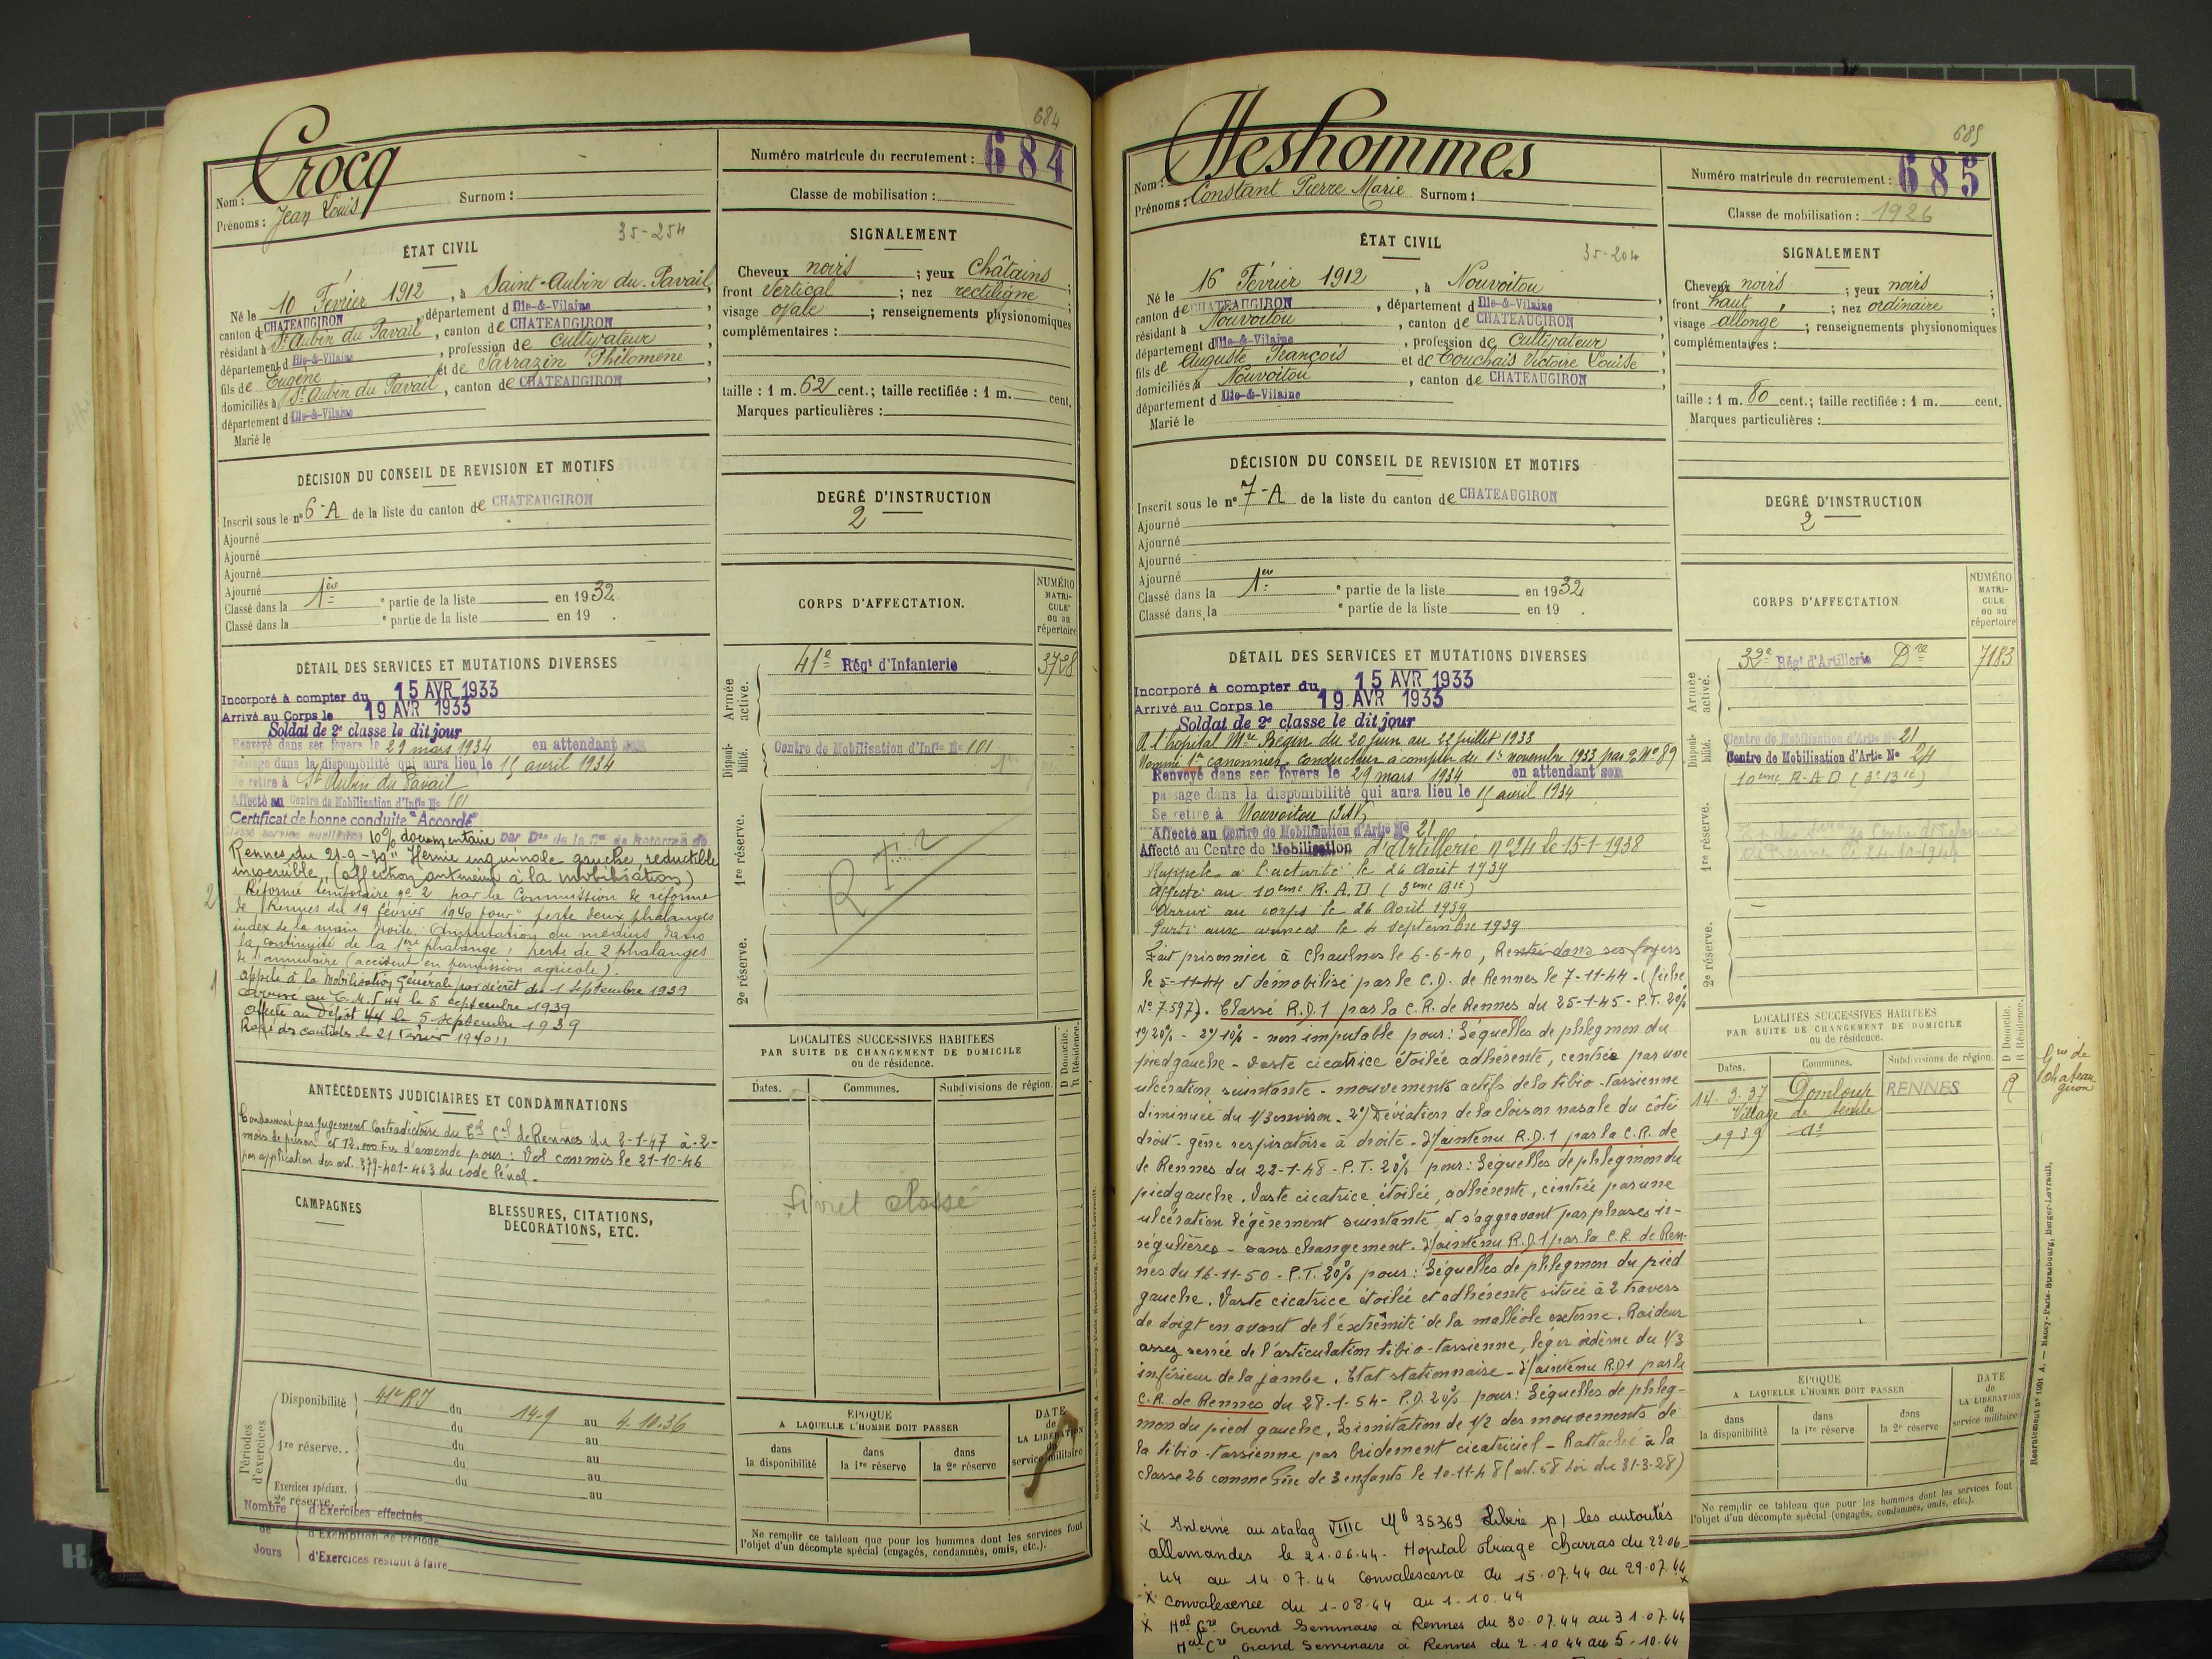 684
Nom : Crocq
Prénoms : Jean Louis Surnom :
Numéro matricule du recrutement : 684
Classe de mobilisation :
ÉTAT CIVIL
35-254
Né le 10 Février 1912, à Saint-Aubin du Pavail,
canton de CHATEAUGIRON, département d Ille-&-Vilaine,
résidant à St Aubin du Pavail, canton de CHATEAUGIRON,
département d Ille-&-Vilaine, profession de Cultivateur
fils de Eugène et de Sarrazin Philomène,
domiciliés à St Aubin du Pavail, canton de CHATEAUGIRON,
département d Ille-&-Vilaine
Marié le
SIGNALEMENT
Cheveux noirs ; yeux Châtains ;
front Vertical ; nez rectiligne ;
visage ovale ; renseignements physionomiques
complémentaires :
taille : 1 m. 62 cent.; taille rectifiée : 1 m. cent.
Marques particulières :
DÉCISION DU CONSEIL DE REVISION ET MOTIFS
Inscrit sous le n° 6-A de la liste du canton de CHATEAUGIRON
Ajourné
Ajourné
Ajourné
Ajourné
Classé dans la 1ère e partie de la liste en 1932.
Classé dans la e partie de la liste en 19 .
DEGRÉ D'INSTRUCTION
2
DÉTAIL DES SERVICES ET MUTATIONS DIVERSES
Incorporé à compter du 15 AVR 1933
Arrivé au Corps le 19 AVR 1933
Soldat de 2e classe le dit jour
Renvoyé dans ses foyers le 29 mars 1934 en attendant son
passage dans la disponibilité qui aura lieu le 15 avril 1934
Se retire à St Aubin du Pavail
Affecté au Centre de Mobilisation d'Infie No 101
Certificat de bonne conduite "Accordé"
Classé service auxiliaire 10% documentaire par Don de la Con de Réforme de
Rennes du 21-9-39 "Hernie inguinale gauche, réductible
(affection antérieure à la mobilisation)
2 Réformé temporaire no 2 par la Commission de réforme
de Rennes du 19 février 1940 pour "perte deux phalanges
index de la main droite. Amputation du médius dans
la continuité de la 1ère phalange, perte de 2 phalanges
de l'annulaire (accident en permission agricole).
1 appelé à la Mobilisation Générale par décret du 1 septembre 1939
arrivé au C.M.I 44 le 5 septembre 1939
affecté au Dépôt 44 le 5 septembre 1939
Rayé des contrôles le 21 février 1940
CORPS D'AFFECTATION.
NUMÉRO MATRICULE ou au répertoire
Armée active.
41e Régt d'Infanterie 3728
Disponibilité.
Centre de Mobilisation d'Infie No 101
1re réserve.
2e réserve.
ANTÉCÉDENTS JUDICIAIRES ET CONDAMNATIONS
Condamné par jugement Contradictoire du Cal de Rennes du 2-1-47 à -2-
mois de prison et 12.000 Frs d'amende pour : Vol commis le 21-10-46
par application des art. 379-401-463 du code Pénal.
LOCALITÉS SUCCESSIVES HABITÉES
PAR SUITE DE CHANGEMENT DE DOMICILE
ou de résidence.
Dates. Communes. Subdivisions de région. D Domicile. R Résidence.
Livret classé
CAMPAGNES
BLESSURES, CITATIONS,
DÉCORATIONS, ETC.
Périodes d'exercices
Disponibilité 41e RI du 14-9 au 4.10.36
du au
1re réserve.. du au
du au
Exercices spéciaux. du au
2e réserve. au
Nombre de Jours
d'Exercices effectués
d'Exemption de Période
d'Exercices restant à faire
ÉPOQUE
A LAQUELLE L'HOMME DOIT PASSER
dans la disponibilité
dans la 1re réserve
dans la 2e réserve
DATE de LA LIBÉRATION du service militaire
Ne remplir ce tableau que pour les hommes dont les services font
l'objet d'un décompte spécial (engagés, condamnés, omis, etc.).
685
Nom : Deshommes
Prénoms : Constant Pierre Marie Surnom :
Numéro matricule du recrutement : 685
Classe de mobilisation : 1926
ÉTAT CIVIL
35-204
Né le 16 Février 1912, à Nouvoitou
canton de CHATEAUGIRON, département d Ille-&-Vilaine,
résidant à Nouvoitou, canton de CHATEAUGIRON,
département d Ille-&-Vilaine, profession de Cultivateur
fils de Auguste François et de Touchais Victoire Louise,
domiciliés à Nouvoitou, canton de CHATEAUGIRON,
département d Ille-&-Vilaine
Marié le
SIGNALEMENT
Cheveux noirs ; yeux noirs ;
front haut ; nez ordinaire ;
visage allongé ; renseignements physionomiques
complémentaires :
taille : 1 m. 80 cent.; taille rectifiée : 1 m. cent.
Marques particulières :
DÉCISION DU CONSEIL DE REVISION ET MOTIFS
Inscrit sous le n° 7-A de la liste du canton de CHATEAUGIRON
Ajourné
Ajourné
Ajourné
Ajourné
Classé dans la 1ère e partie de la liste en 1932
Classé dans la e partie de la liste en 19 .
DEGRÉ D'INSTRUCTION
2
DÉTAIL DES SERVICES ET MUTATIONS DIVERSES
Incorporé à compter du 15 AVR 1933
Arrivé au Corps le 19 AVR 1933
Soldat de 2e classe le dit jour
A l'hôpital Mre Bégin du 20 juin au 22 juillet 1933
Nommé 1er canonnier conducteur à compter du 1er novembre 1933 No 89
Renvoyé dans ses foyers le 29 mars 1934 en attendant son
passage dans la disponibilité qui aura lieu le 15 avril 1934
Se retire à Nouvoitou (I&V)
Affecté au Centre de Mobilisation d'Artie No 21
Affecté au Centre de Mobilisation d'Artillerie no 24 le 15-1-1938
Rappelé à l'activité le 26 Août 1939
affecté au 10ème R.A.D (3ème Bie)
arrivé au corps le 26 Août 1939
Parti aux armées le 4 septembre 1939
Fait prisonnier à Chaulnes le 6-6-40, Rentré dans ses foyers
le 5-11-44 et démobilisé par le C.D. de Rennes le 7-11-44 - (fiche
No 7.597). Classé R.D.1 par la C.R. de Rennes du 25-1-45 - P.T. 20%
1°) 20% - 2°) 10% - non imputable pour : Séquelles de phlegmon du
pied gauche - Vaste cicatrice étoilée adhérente, centrée par une
ulcération suintante - mouvements actifs de la tibio-tarsienne
diminués du 1/3 environ - 2°) Déviation de la cloison nasale du côté
droit - gêne respiratoire à droite - Maintenu R.D.1 par la C.R. de
de Rennes du 22-1-48 - P.T. 20% pour : Séquelles de phlegmon du
pied gauche. Vaste cicatrice étoilée, adhérente, centrée par une
ulcération légèrement suintante, et s'aggravant par phases ir-
régulières - sans changement. Maintenu R.D.1 par la C.R. de Ren-
nes du 16-11-50 - P.T. 20% pour : Séquelles de phlegmon du pied
gauche. Vaste cicatrice étoilée et adhérente située à 2 travers
de doigt en avant de l'extrémité de la malléole externe. Raideur
assez serrée de l'articulation tibio-tarsienne, léger œdème du 1/3
inférieur de la jambe. Etat stationnaire - Maintenu R.D1 par la
C.R. de Rennes du 28-1-54 - P.D. 20% pour : Séquelles de phleg-
mon du pied gauche, Limitation de 1/2 des mouvements de
la tibio-tarsienne par bridement cicatriciel - Rattaché à la
classe 26 comme Père de 3 enfants le 10-11-48 (art. 58 Loi du 31-3-28)
x Interné au stalag VIIIC Mle 35369 Libéré p/ les autorités
allemandes le 21.06.44 - Hopital Uriage charras du 22.06-
44 au 14.07.44 Convalescence du 15.07.44 au 29.07.44 x
x Convalescence du 1-08-44 au 1.10.44
x Hal Cre Grand Seminaire à Rennes du 30.07.44 au 31.07.44
Hal Cre Grand Seminaire à Rennes du 2.10.44 au 5-10.44
CORPS D'AFFECTATION
NUMÉRO MATRICULE ou au répertoire
Armée active.
32e Régt d'Artillerie Dre 7183
Disponibilité.
Centre de Mobilisation d'Artie No 21
Centre de Mobilisation d'Artie No 24
10ème R.A.D (3e Bie)
1re réserve.
2e réserve.
LOCALITÉS SUCCESSIVES HABITÉES
PAR SUITE DE CHANGEMENT DE DOMICILE
ou de résidence.
Dates. Communes. Subdivisions de région. D Domicile. R Résidence.
14.3.37 Domloup RENNES R
Village de
1939 do
Gie de Chateaugiron
ÉPOQUE
A LAQUELLE L'HOMME DOIT PASSER
dans la disponibilité
dans la 1re réserve
dans la 2e réserve
DATE de LA LIBÉRATION du service militaire
Ne remplir ce tableau que pour les hommes dont les services font
l'objet d'un décompte spécial (engagés, condamnés, omis, etc.).
Recrutement n° 1001 A. — Nancy-Paris-Strasbourg, Berger-Levrault.